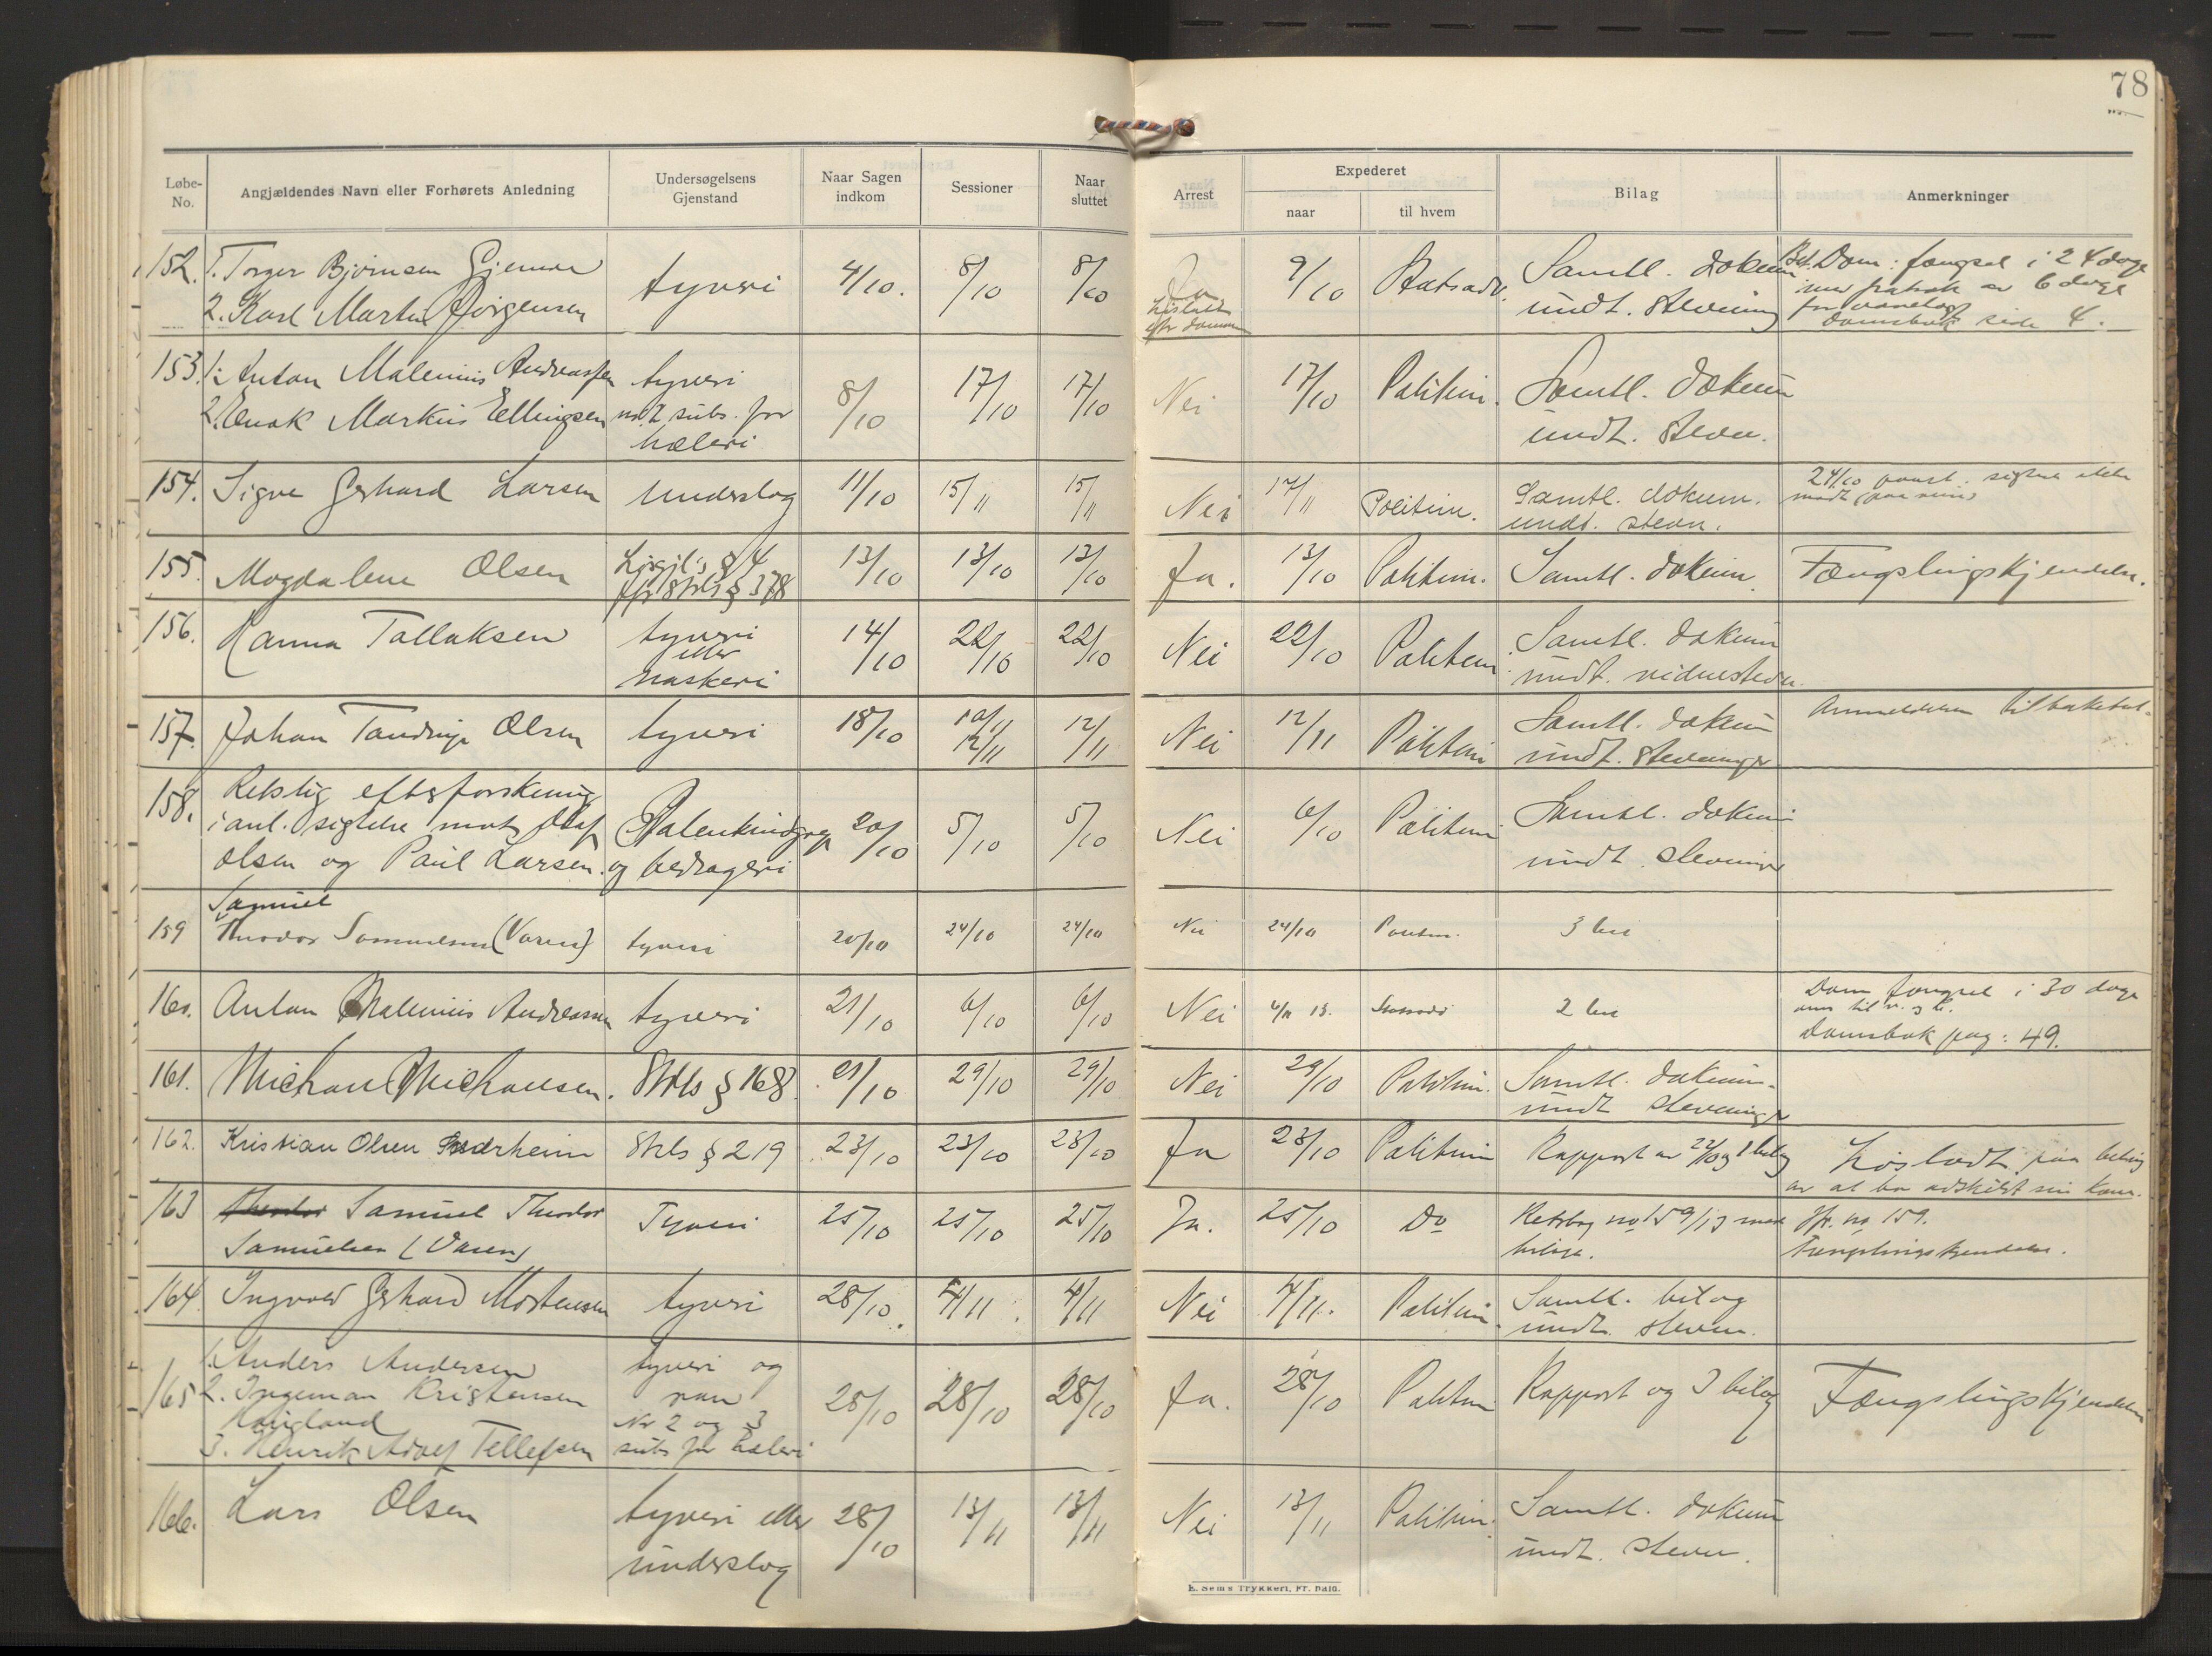 78
Løbe-No.
Angjældendes Navn eller Forhørets Anledning
Undersøgelsens Gjenstand
Naar Sagen indkom
Sessioner
Naar sluttet
Arrest
Expederet
naar
til hvem
Bilag
Anmerkninger
152. 1. Torger Bjørnsen tyveri 4/10. 8/10 8/10 Ja 9/10 Statsadv. Samtl. dokum Bet. Dom: fængsel i 24 dage
2. Karl Martin Jørgensen Løslatt efter dommen undt. stevning med fradrak av 6 dage
for varetægt
Domsbok side 4.
153. 1. Anton Malenius Andreassen tyveri 8/10 17/10 17/10 Nei 17/10 Politim. Samtl. dokum
2. Enok Markus Ellingsen nr. 2 subs. for undt. stevn.
hæleri
154. Sigve Gerhard Larsen underslag 11/10 15/11 15/11 Nei 17/11 Politim. Samtl. dokum. 24/10 siktede ikke
undt. stevn. mødt
155. Magdalene Olsen Løsgjl's § 4 13/10 13/10 13/10 Ja. 13/10 Politim. Samtl. dokum. Fængslingskjendelse.
jfr Strls § 378
156. Hanna Tallaksen tyveri 14/10 22/10 22/10 Nei 22/10 Politim Samtl. dokum
eller undt. vidnestevn.
naskeri
157. Johan Olsen tyveri 18/10 10/11 12/11 Nei 12/11 Politim Samtl. dokum Anmeldelsen tilbakekal-
12/11 undt. stevninger
158. Retslig efterforskning
i anl. sigtelse mot Olaf Falskmynteri 20/10 5/10 5/10 Nei 6/10 Politim Samtl. dokum
Olsen og Paul Larsen. og bedrageri undt. stevninger
Samuel
159 Theodor Samuelsen (Vasen) tyveri 20/10 24/10 24/10 Nei 24/10 Politim. 3 bil
160. Anton Malenius Andreassen tyveri 21/10 6/10 6/10 Nei 6/11 13. Statsadv 2 bil Dom fængsel i 30 dage
Domsbok pag: 49.
161. Michael Michaelsen. Strls § 168. 21/10 29/10 29/10 Nei 29/10 Politim. Samtl. dokum.
undt stevninger
162. Kristian Olsen Strls § 219 23/10 23/10 23/10 Ja 23/10 Politim Rapport av 22/10 og 1 bilag Løsladt paa beting
av at bo adskilt sin kone.
163 Theodor Samuel Theodor Tyveri 25/10 25/10 25/10 Ja. 25/10 Do Retsbog no 159/13 med Jfr. no 159.
Samuelsen (Vasen) bilage. Fængslingskjendelse.
164. Ingvald Gerhard Mortensen tyveri 28/10. 4/11. 4/11 Nei 4/11. Politim. Samtl. bilag
undt. stevn.
165 1. Anders Andersen tyveri og 28/10 28/10 28/10 Ja. 28/10 Politim Rapport og 3 bilag Fængslingskjendelse
2. Ingeman Kristensen ran
Haugland Nr 2 og 3
3. Henrik Adolf Tellefsen subs for hæleri
166. Lars Olsen tyveri eller 28/10 13/11 13/11 Nei 13/11 Politim. Samtl. dokum
underslag undt. stevn.
E. Sems Trykkeri, Fr.hald.